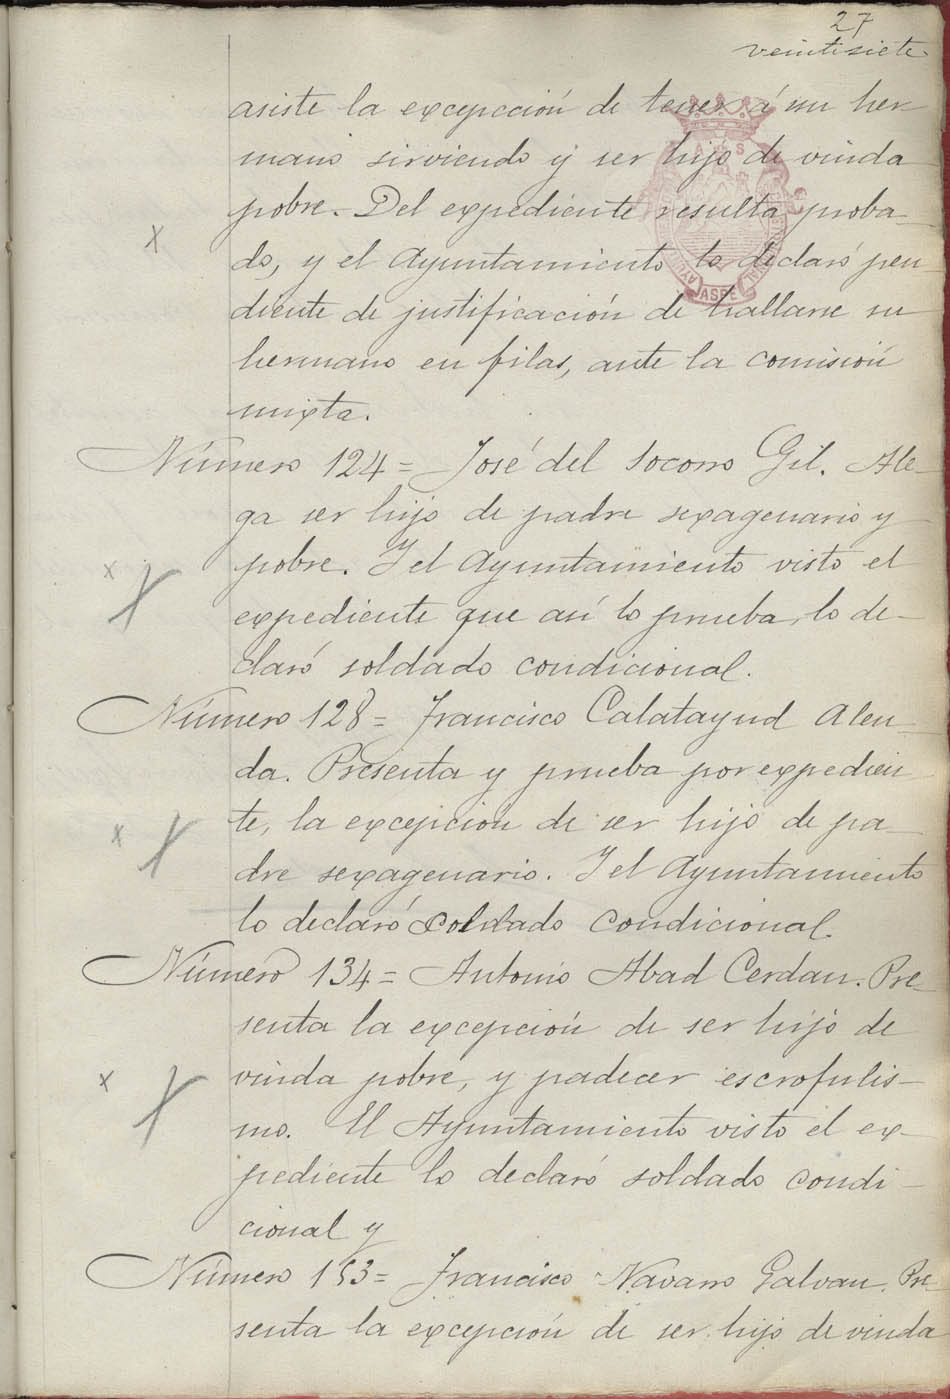 27
veintisiete
asiste la excepcción de tener á un her-
mano sirviendo y ser hijo de viuda
pobre. Del expediente resulta proba-
do, y el Ayuntamiento lo declaró pen-
diente de justificación de hallarse su
hermano en filas, ante la comisión
mixta.
Número 124 = José del Socorro Gil. Ale-
ga ser hijo de padre sexagenario y
pobre. Y el Ayuntamiento visto el
expediente que así lo prueba, lo de-
claró soldado condicional.
Número 128 = Francisco Calatayud Alen-
da. Presenta y prueba por expedien-
te, la excepción de ser hijo de pa-
dre sexagenario. Y el Ayuntamiento
lo declaró soldado condicional.
Número 134 = Antonio Abad Cerdan. Pre-
senta la excepción de ser hijo de
viuda pobre, y padecer escrofulis-
mo. El Ayuntamiento visto el ex-
pediente lo declaró soldado condi-
cional y
Número 153 = Francisco Navarro Galvan. Pre-
senta la excepción de ser hijo de viuda
ASPE